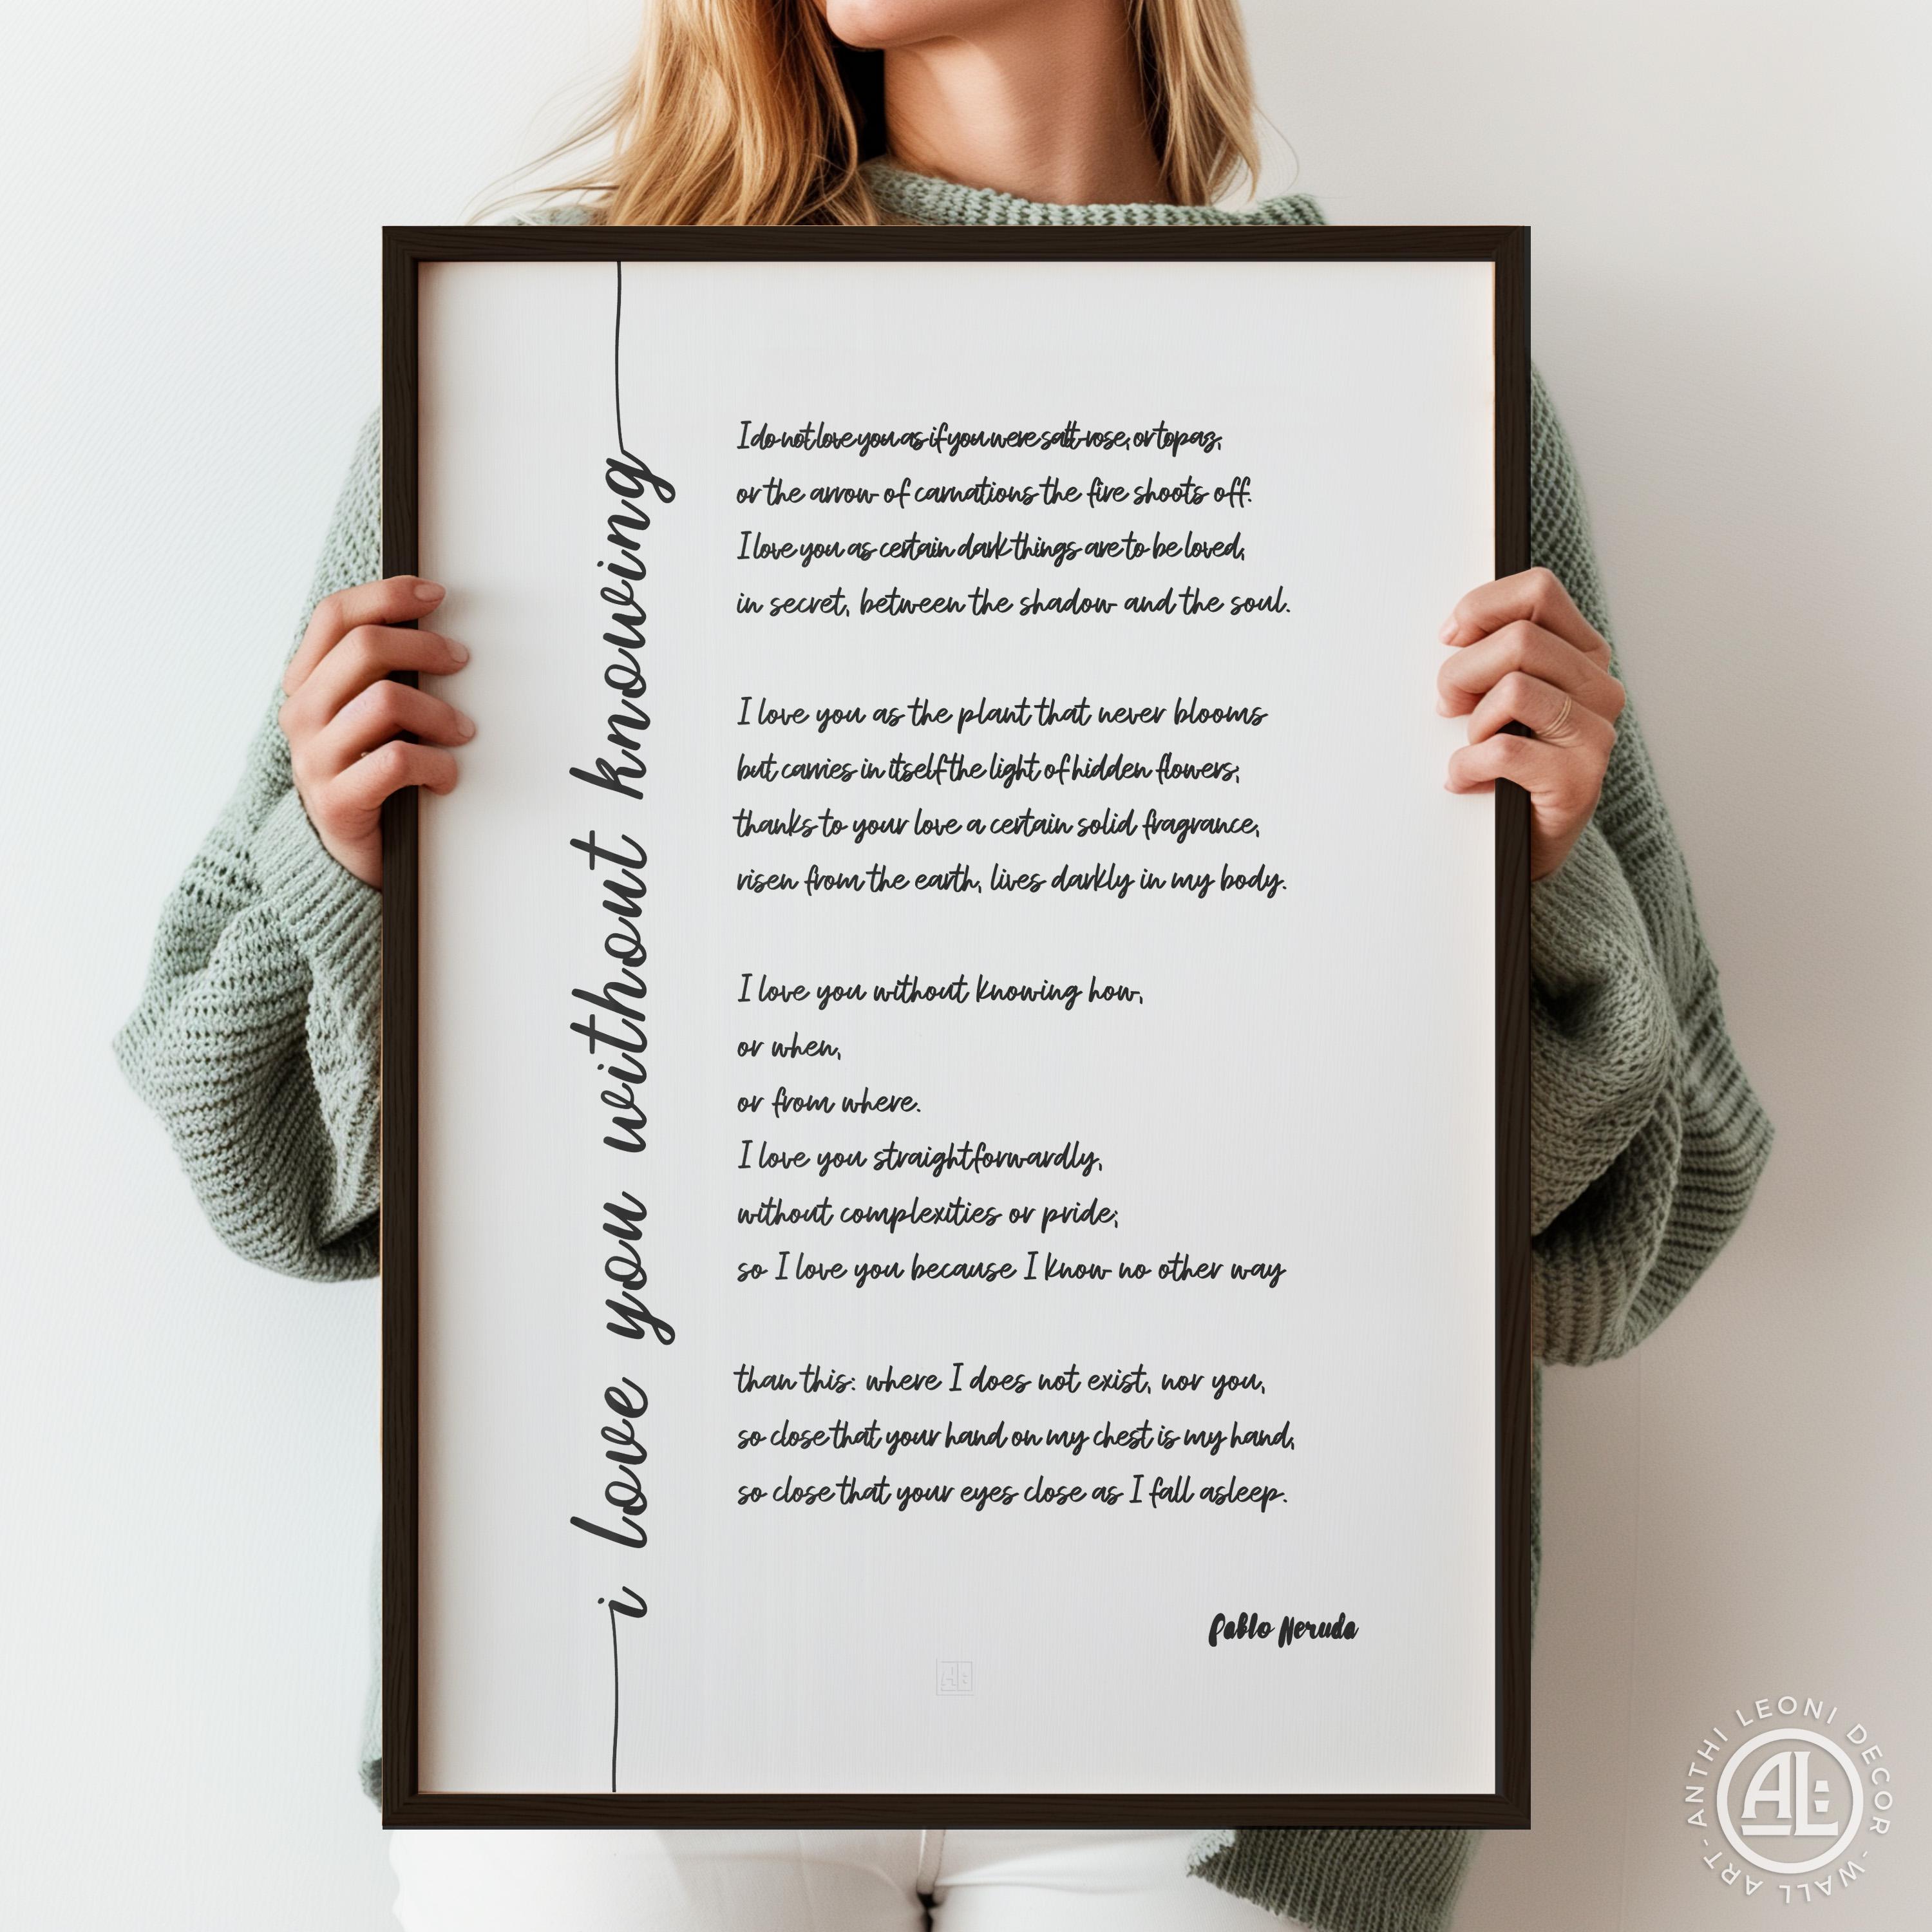 i love you without knowing
I do not love you as if you were salt-rose, or topaz,
or the arrow of carnations the fire shoots off.
I love you as certain dark things are to be loved,
in secret, between the shadow and the soul.
I love you as the plant that never blooms
but carries in itself the light of hidden flowers;
thanks to your love a certain solid fragrance,
risen from the earth, lives darkly in my body.
I love you without knowing how,
or when,
or from where.
I love you straightforwardly,
without complexities or pride;
so I love you because I know no other way
than this: where I does not exist, nor you,
so close that your hand on my chest is my hand,
so close that your eyes close as I fall asleep.
Pablo Neruda
ANTHI LEONI DECOR - WALL ART -